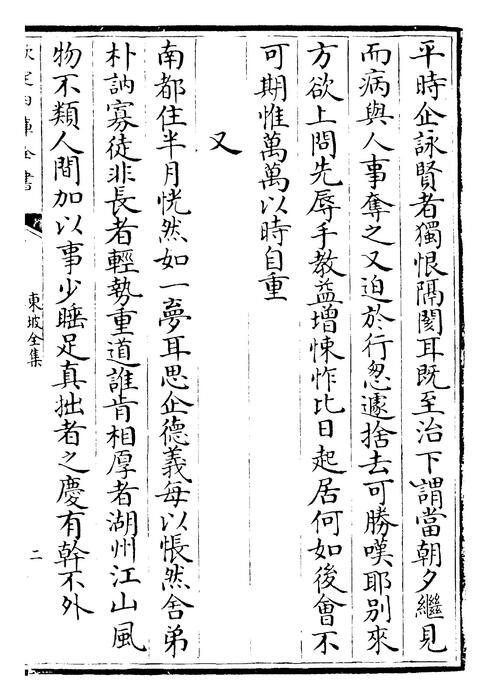 平時企詠賢者獨恨隔闊耳既至治下謂當朝夕繼見
而病與人事奪之又迫於行怱遽捨去可勝嘆耶别來
方欲上問先辱手教益增悚怍比日起居何如後會不
可期惟萬萬以時自重
又
南都住半月恍然如一夢耳思企德義每以悵然舍弟
朴訥寡徒非長者輕勢重道誰肯相厚者湖州江山風
物不類人間加以事少睡足真拙者之慶有幹不外
欽定四庫全書
東坡全集
二